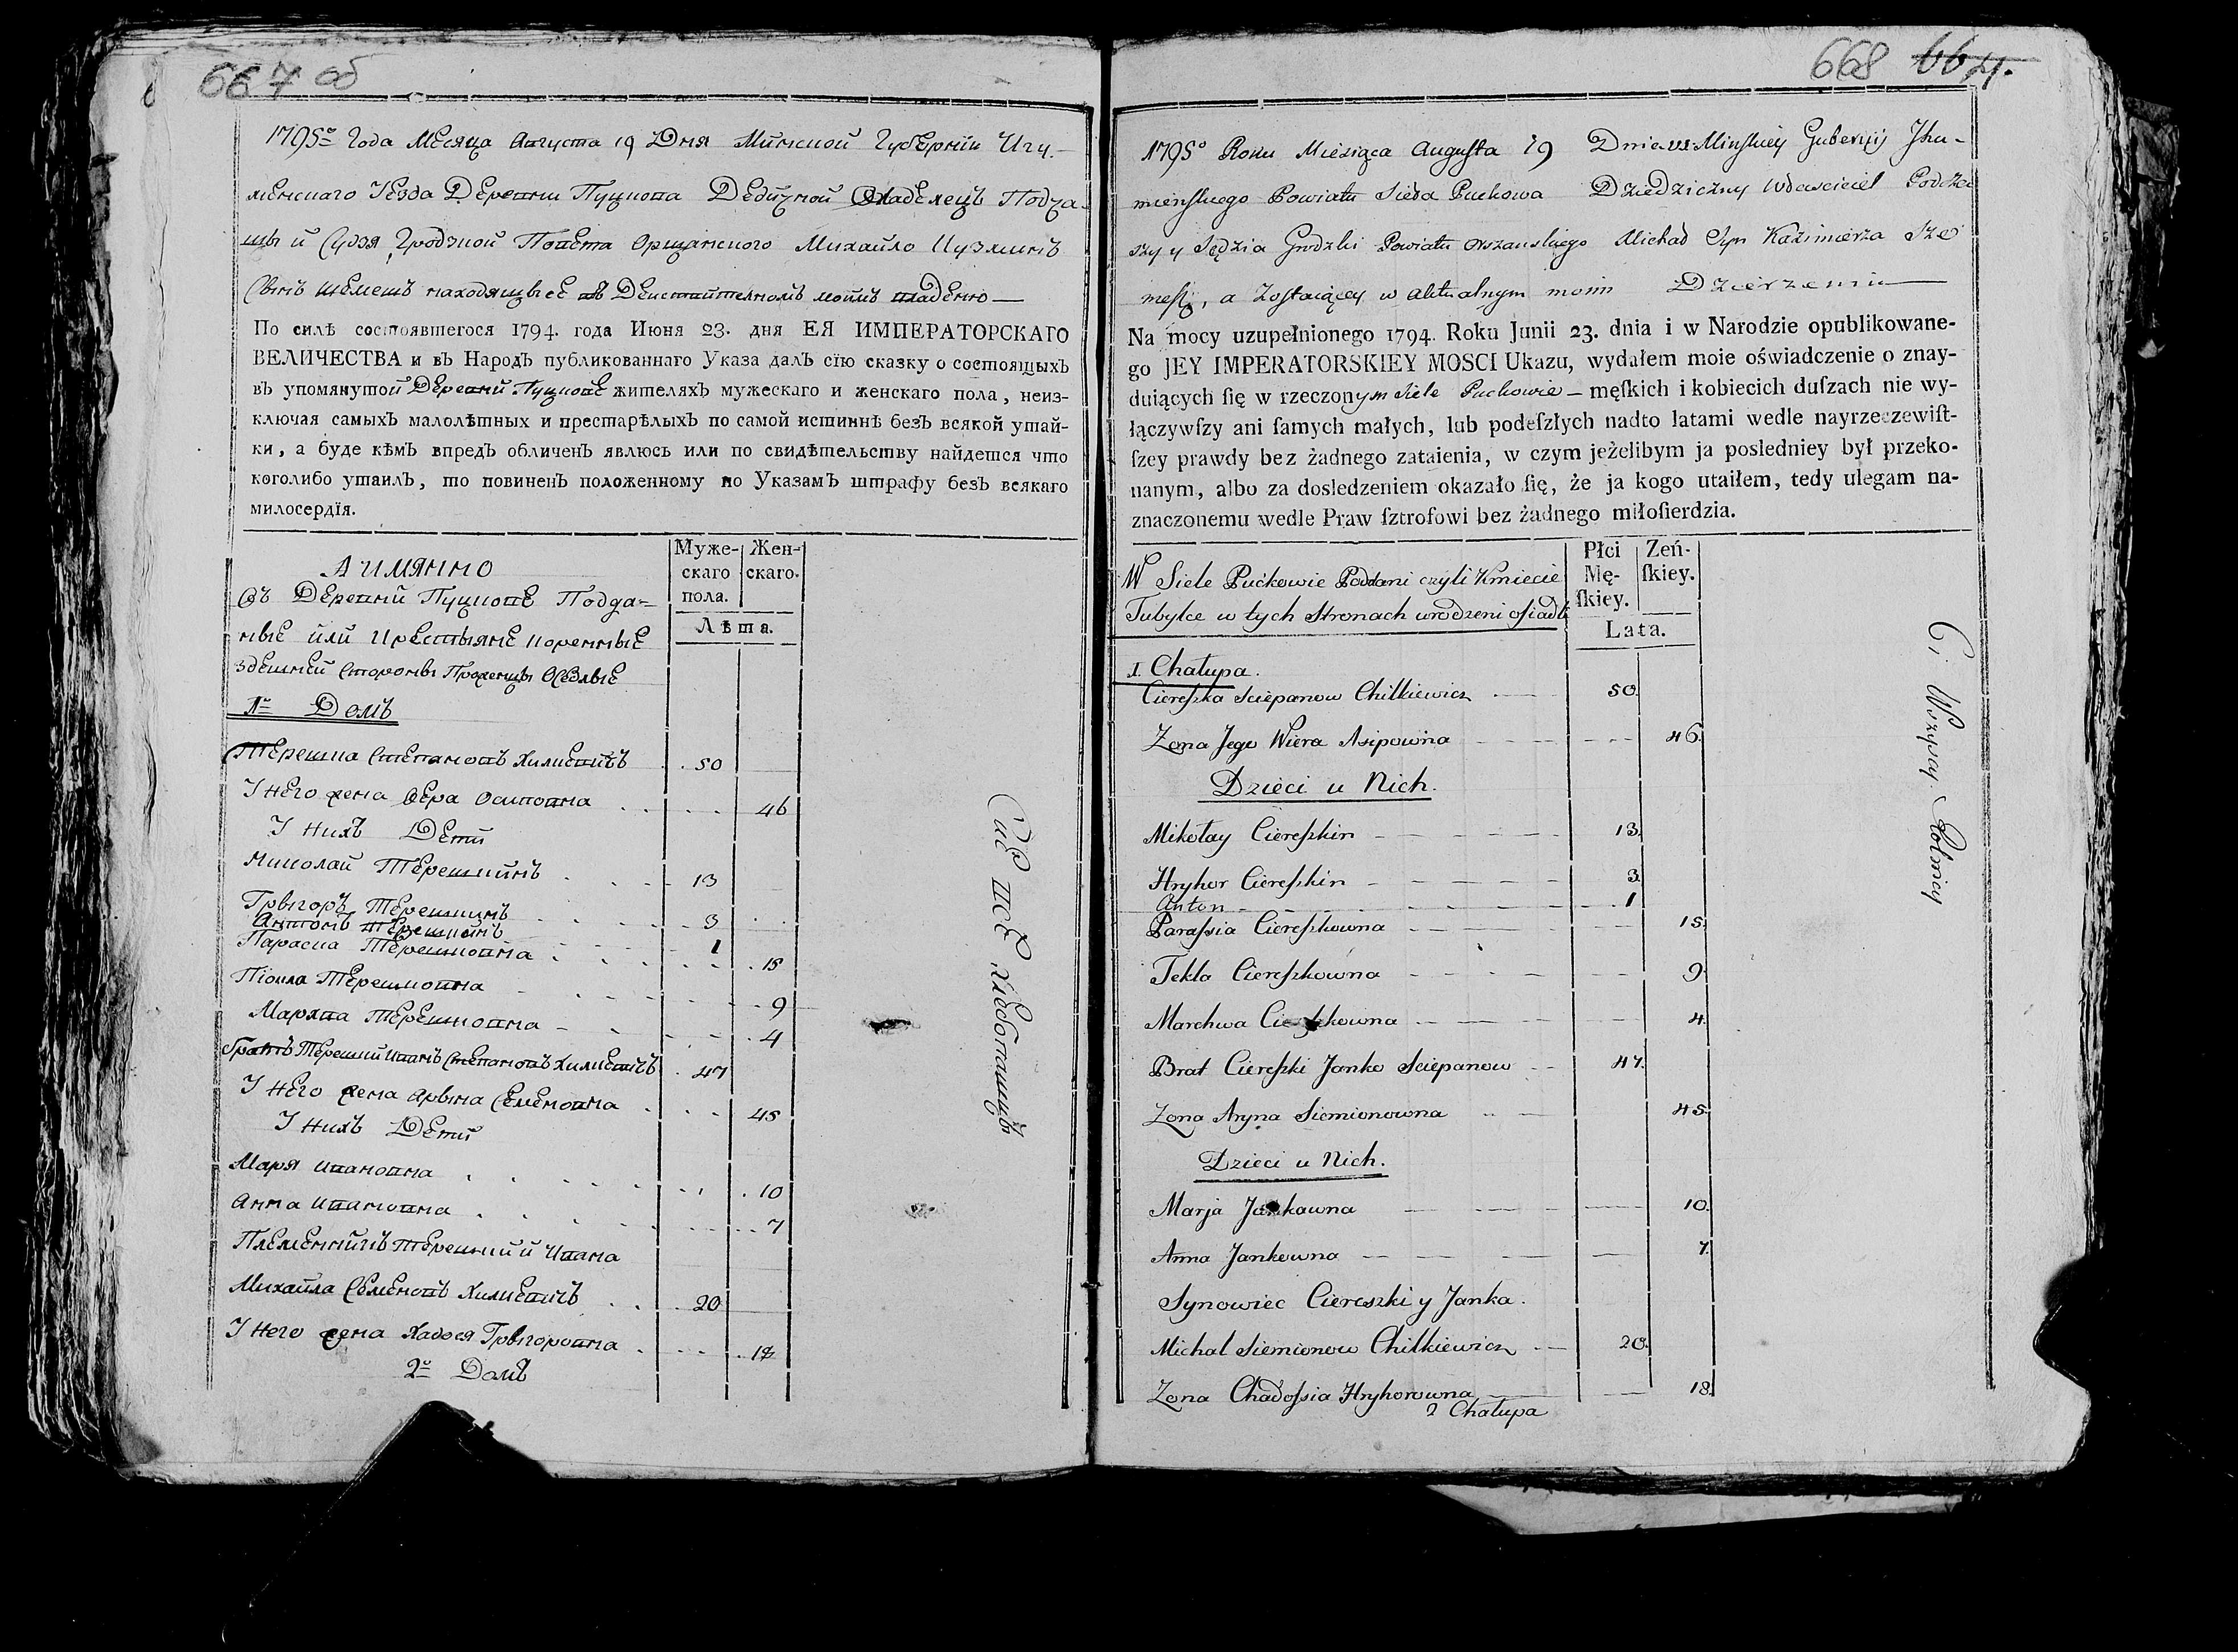 667 об
1795го Года Месяца Августа 19 Дня Минской Губернии Игу-
менскаго Уезда Деревни Пуцкова Дедизной Владелецъ Подча-
шы и Судя Гродзкой Повета Оршанского Михайло Кузминъ
Сынъ находящыесе въ моимъ владенiю
По силѣ состоявшегося 1794. года Июня 23. дня ЕЯ ИМПЕРАТОРСКАГО
ВЕЛИЧЕСТВА и въ Народъ публикованнаго Указа далъ сїю сказку о состоящыхъ
въ упомянутой Деревни Пуцкове жителяхъ мужескаго и женскаго пола, неиз-
ключая самыхъ малолѣтных и престарѣлыхъ по самой истиннѣ безъ всякой утай-
ки, а буде кѣмъ впредъ обличенъ явлюсь или по свидѣтельству найдется что
коголибо утаилъ, то повиненъ положенному по Указамъ штрафу безъ всякаго
милосердїя.
Муже-скаго пола. Жен-скаго.
Лѣта.
А имянно
Въ Деревни Пуцкове Подда-
ные или Крестьяне коренные
здешней стороны Уроженцы Оседлые
1й Домъ
Терешка Степановъ Хилкевичъ 50
У него жена Вера Осиповна 46
У нихъ Дети
Николай Терешкинъ 13
Грыгоръ Терешкинъ 3
Антонъ Терешкинъ 1
Параска Терешковна 15
Терешковна 9
Терешковна 4
братъ Терешки Иванъ Степановъ Хилкевичъ 47
У него жена Арына Семеновна 45
У нихъ Дети
Маря Ивановна 10
Анна Ивановна 7
Племенникъ Терешки и Ивана
Михайла Семеновъ Хилкевичъ 20
У него жена Хадося Грыгоровна 18
2й Домъ
Сие все хлебопашцы
668 664.
1795º Roku Miesiąca Augusta 19 Dnia w Minſkiey Gubernij Jhu-
mieńſkiego Powiatu Sieła Puckowa Dziedziczny Właściciel Podcza
szy y Sędzia Grodzki Powiatu Orszanſkiego Michał Syn Kazimierza Sze
meſz, a Zoſtaiącey w aktualnym moim Dzierzeniu
Na mocy uzupełnionego 1794. Roku Junii 23. dnia i w Narodzie opublikowane-
go JEY IMPERATORSKIEY MOSCI Ukazu, wydałem moie oświadczenie o znay-
duiących ſię w rzeczonym Siele Puckowie – męſkich i kobiecich duſzach nie wy-
łączywſzy ani ſamych małych, lub podeſzłych nadto latami wedle nayrzeczewiſt-
ſzey prawdy bez żadnego zataienia, w czym jeżelibym ja posledniey był przeko-
nanym, albo za dosledzeniem okazało ſię, że ja kogo utaiłem, tedy ulegam na-
znaczonemu wedle Praw ſztrofowi bez żadnego miłoſierdzia.
Płci Mę-ſkiey. Zeń-ſkiey.
Lata.
W Siele Puckowie Poddani czyli Kmiecie
Tubylce w tych Stronach urodzeni osiadli
1. Chałupa.
Ciereſzka Sciepanow Chilkiewicz 50.
Zona Jego Wiera Asipowna 46.
Dzieci u Nich.
Mikołay Ciereſzkin 13.
Hryhor Ciereſzkin 3.
Anton 1
Paraſsia Ciereſzkowna 15.
Tekla Ciereſzkowna 9.
Marchwa Ciereſzkowna 4.
Brat Ciereſzki Janko Sciepanow 47.
Zona Aryna Siemionowna 45.
Dzieci u Nich.
Marja Jankowna 10.
Anna Jankowna 7.
Synowiec Ciereszki y Janka.
Michal Siemionow Chilkiewicz 20.
Zona Chadoſsia Hryhorowna 18.
2 Chałupa
Ci Wszyscy Rolnicy